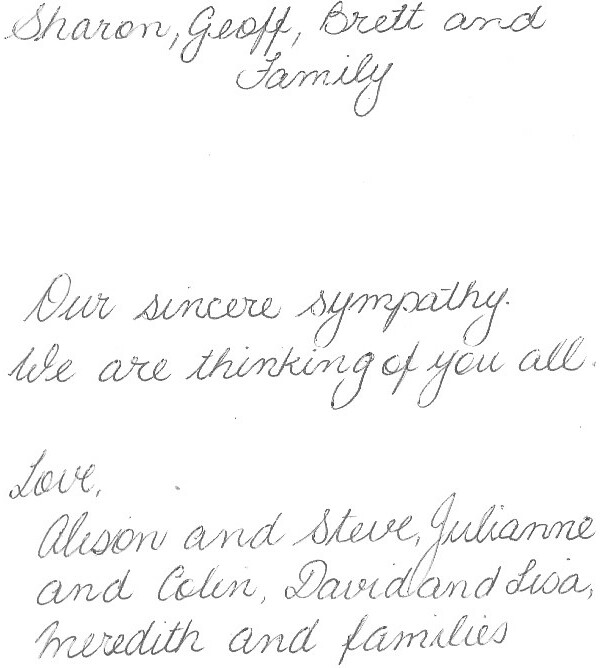 Sharon, Geoff, Brett and
Family
Our sincere sympathy.
We are thinking of you all.
Love,
Alison and Steve, Julianne
and Colin, David and Lisa,
Meredith and families